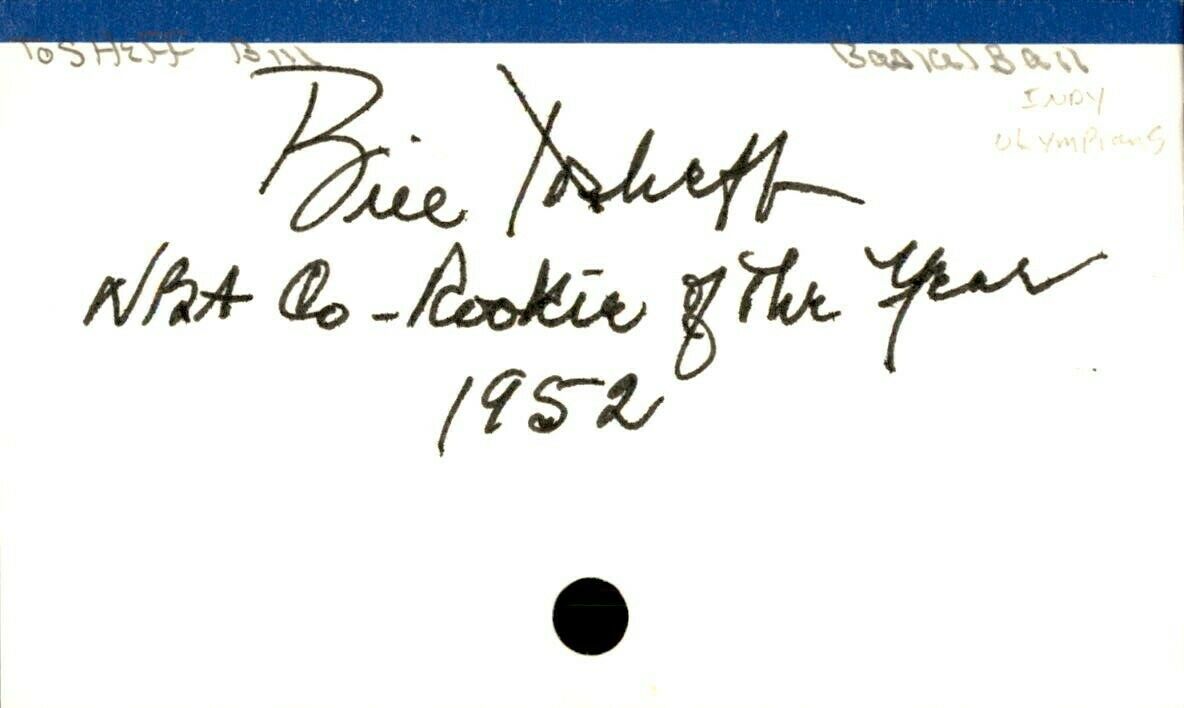 TOSHEFF Bill
BasketBall
INDY
OLYMPianS
Bill Tosheff
NBA Co-Rookie of The Year
1952